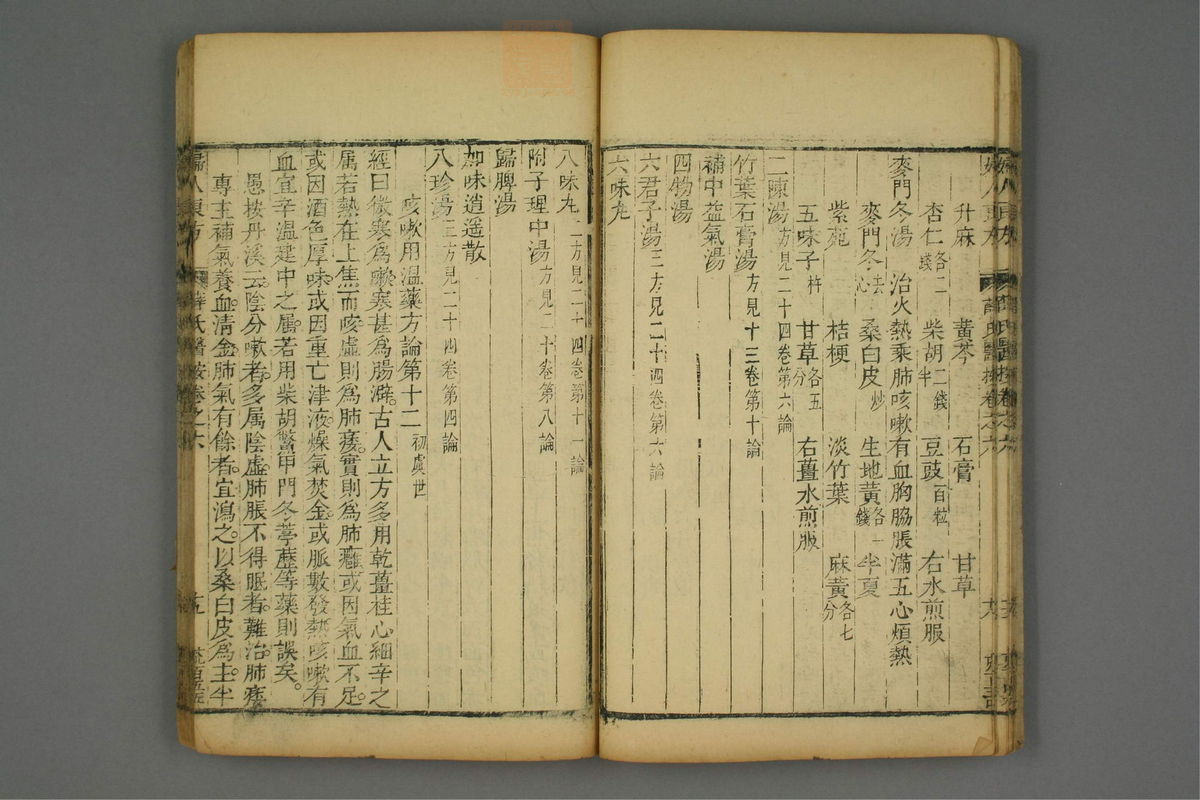 升麻 黃芩 石膏 甘草
杏仁各二錢 柴胡二錢半 豆豉一百粒 右水煎服
麥門冬湯 治火熱乘肺咳嗽有血胸脇脹滿五心煩熱
麥門冬去心 桑白皮炒 生地黃各一錢 半夏
紫菀 桔梗 淡竹葉 麻黃各七分
五味子杵 甘草各五分 右薑水煎服
二陳湯方見二十四卷第六論
竹葉石膏湯方見十三卷第十論
補中益氣湯
四物湯
六君子湯三方見二十四卷第六論
六味丸
八味丸二方見二十四卷第十一論
附子理中湯方見二十卷第八論
歸脾湯
加味逍遥散
八珍湯三方見二十四卷第四論
咳嗽用温藥方論第十二初虞世
經曰微寒爲嗽寒甚爲腸澼古人立方多用乾薑桂心細辛之
属若熱在上焦而咳虛則爲肺痿實則爲肺癰或因氣血不足
或因酒色厚味或因重亡津液燥氣焚金或脈數發熱咳嗽有
血宜辛温建中之属若用柴胡鱉甲門冬葶藶等藥則誤矣
愚按丹溪云陰分嗽者多属陰虛肺脹不得眠者難治肺痿
專主補氣養血清金肺氣有餘者宜瀉之以桑白皮爲主半
婦人良方 薛氏醫按卷之六